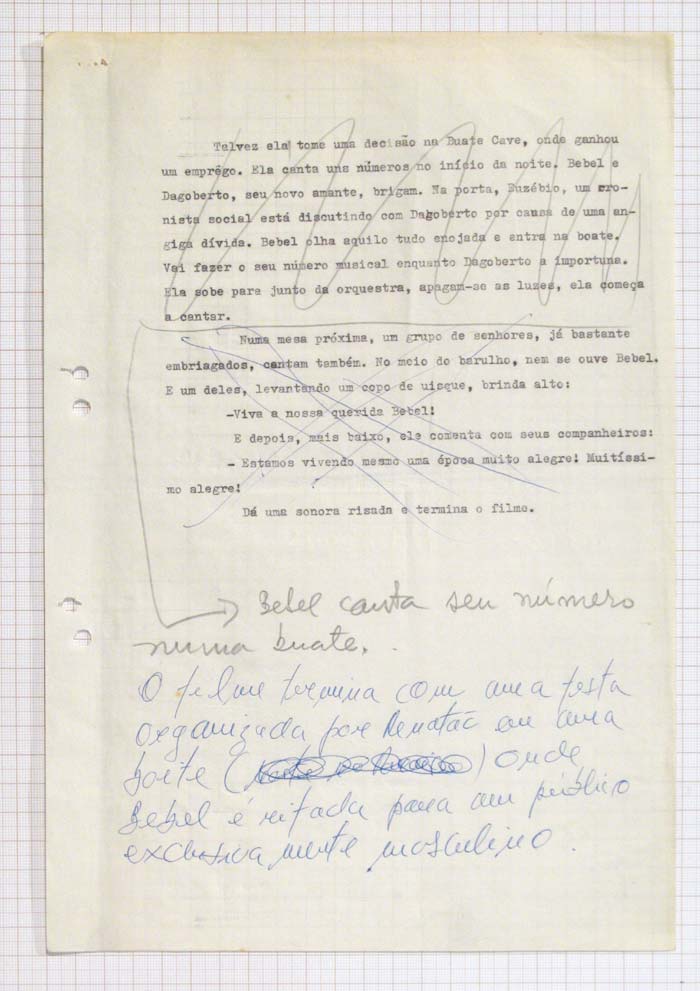 Talvez ela tome uma decisão na Buate Cave, onde ganhou
um emprêgo. Ela canta uns números no início da noite. Bebel e
Dagoberto, seu novo amante, brigam. Na porta, Euzébio, um cro-
nista social está discutindo com Dagoberto por causa de uma an-
giga dívida. Bebel olha aquilo tudo enojada e entra na boate.
Vai fazer o seu número musical enquanto Dagoberto a importuna.
Ela sobe para junto da orquestra, apagam-se as luzes, ela começa
a cantar.
Numa mesa próxima, um grupo de senhores, já bastante
embriagados, cantam também. No meio do barulho, nem se ouve Bebel.
E um deles, levantando um copo de uisque, brinda alto:
-Viva a nossa querida Bebel!
E depois, mais baixo, ele comenta com seus companheiros:
- Estamos vivendo mesmo uma época muito alegre! Muitíssi-
mo alegre!
Dá uma sonora risada e termina o filme.
Bebel canta seu número
numa buate.
O filme termina com uma festa
organizada por Renatão em uma
boite ( ) onde
Bebel é rifada para um público
exclusivamente masculino.